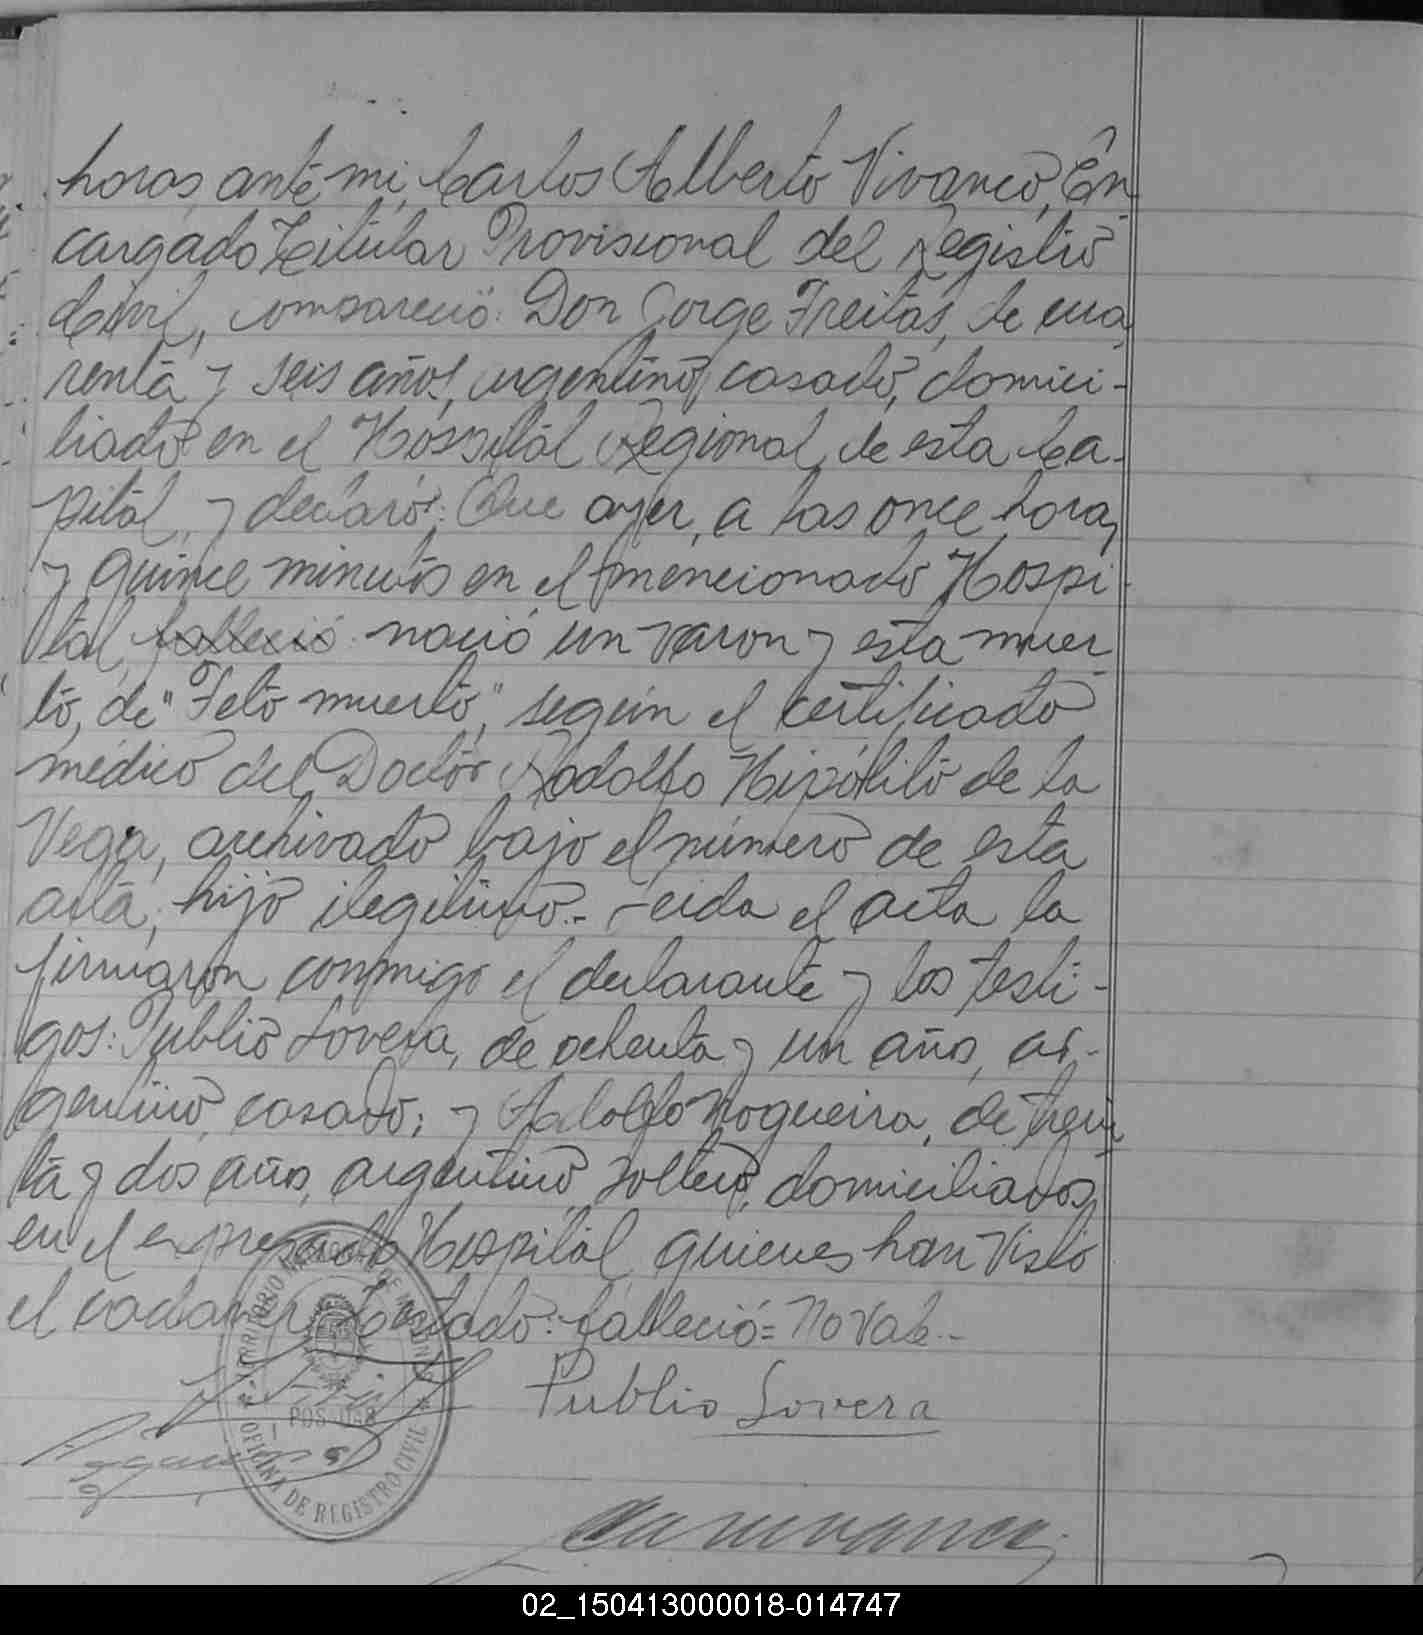 horas, ante mi, Carlos Alberto Vivanco, En
cargado Titular Provisional del Registro
Civil, compareció: Don Jorge Freitas, de cua
renta y seis años, argentino, casado, domici-
liado en el Hospital Regional de esta Ca-
pital, y declaró: Que ayer, a las once horas
y quince minutos en el mencionado Hospi
tal, falleció nació un varon y esta muer
to, de "Feto muerto", según el certificado
médico del Doctor Rodolfo Hipólito de la
Vega, archivado bajo el número de esta
acta, hijo ilegitimo.- Leida el acta la
firmaron conmigo el declarante y los testi-
gos: Publio Lovera, de ochenta y un años, ar-
gentino, casado; y Adolfo Nogueira, de trein
ta y dos años, argentino, soltero, domiciliados
en el expresado Hospital, quienes han visto
el cadaver. Testado: falleció = No Vale.-
Publio Lovera
TERRITORIO NACIONAL DE MISIONES
POSADAS
OFICINA DE REGISTRO CIVIL
02_150413000018-014747